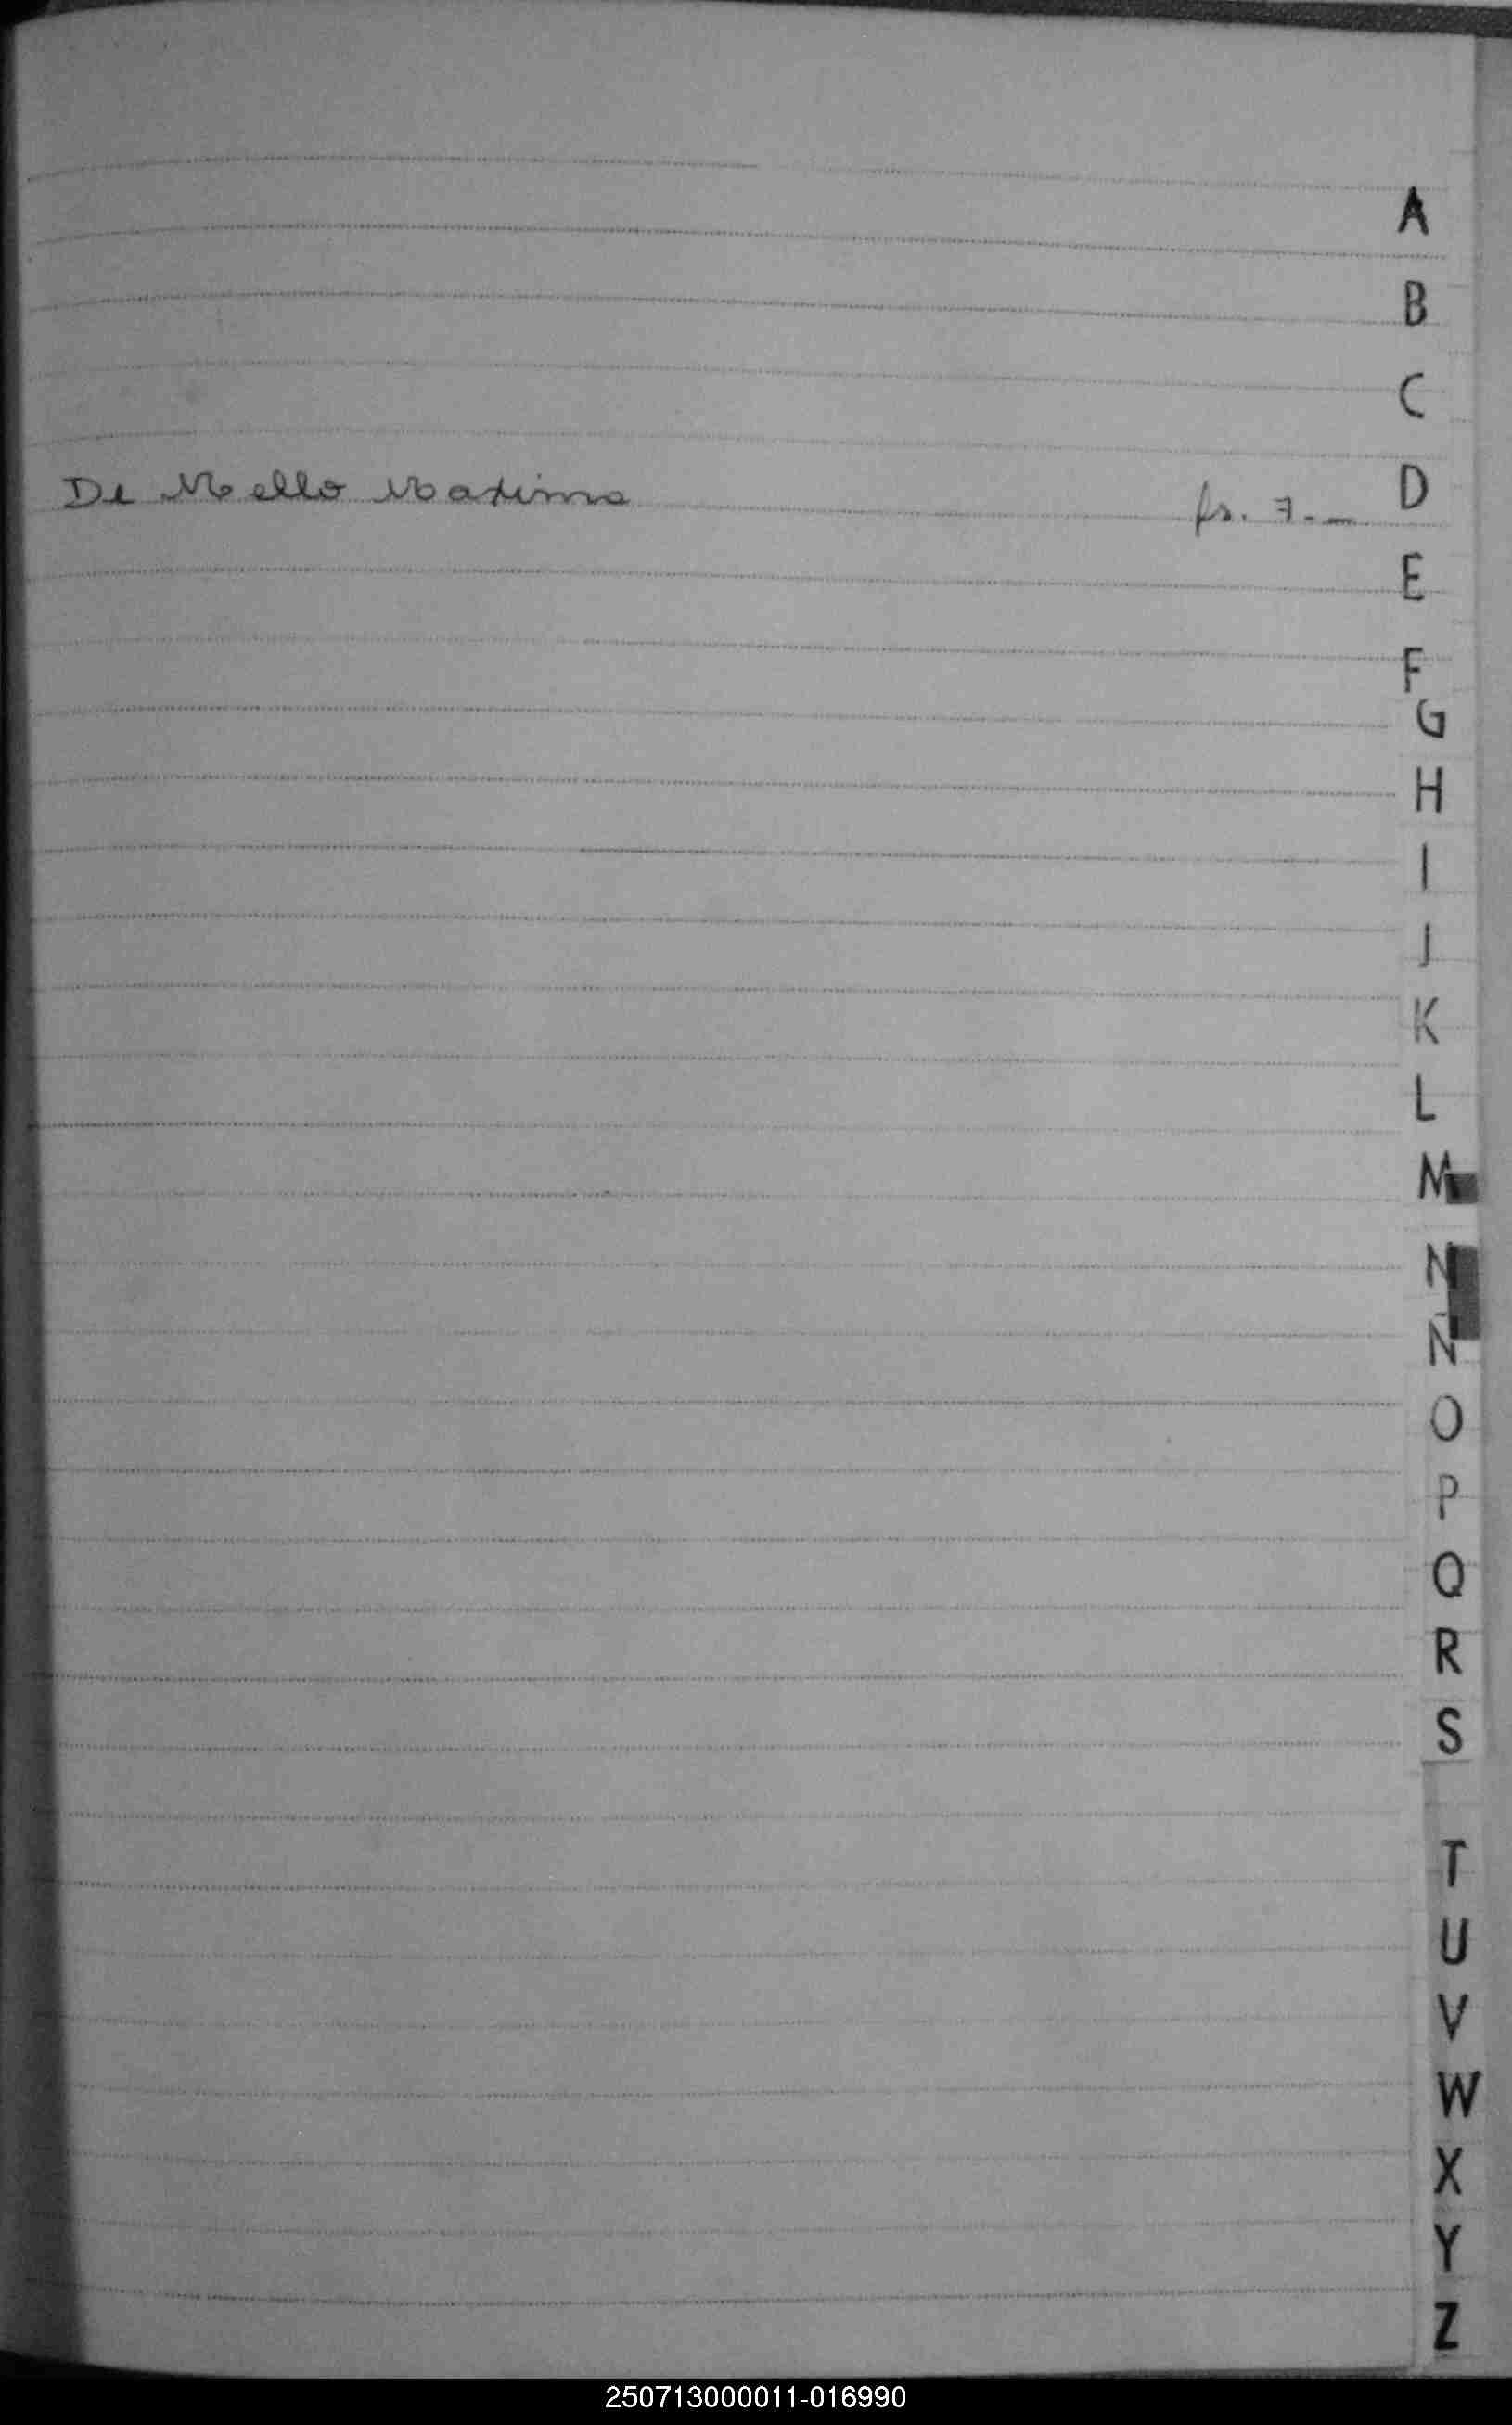 A
B
C
De Mello Maximo fs. 7.- D
E
F
G
H
I
J
K
L
M
N
Ñ
O
P
Q
R
S
T
U
V
W
X
Y
Z
250713000011-016990